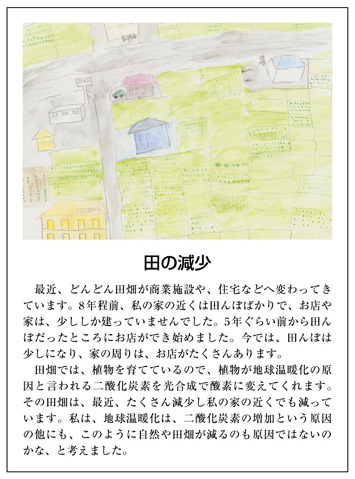 田の減少
最近、どんどん田畑が商業施設や、住宅などへ変わってき
ています。8年程前、私の家の近くは田んぼばかりで、お店や
家は、少ししか建っていませんでした。5年ぐらい前から田ん
ぼだったところにお店ができ始めました。今では、田んぼは
少しになり、家の周りは、お店がたくさんあります。
田畑では、植物を育てているので、植物が地球温暖化の原
因と言われる二酸化炭素を光合成で酸素に変えてくれます。
その田畑は、最近、たくさん減少し私の家の近くでも減って
います。私は、地球温暖化は、二酸化炭素の増加という原因
の他にも、このように自然や田畑が減るのも原因ではないの
かな、と考えました。